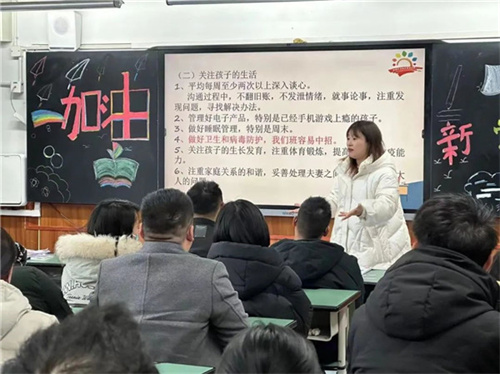 加油
新
（二）关注孩子的生活
1、平均每周至少两次以上深入谈心。
沟通过程中，不翻旧账，不发泄情绪，就事论事，注重发
现问题，寻找解决办法。
2、管理好电子产品，特别是已经手机游戏上瘾的孩子。
3、做好睡眠管理，特别是周末。
4、做好卫生和病毒防护，我们班容易中招。
5、关注孩子的生长发育，注重体育锻炼，提高
疫能
力。
6、注重家庭关系的和谐，妥善处理夫妻之
大
人的问题